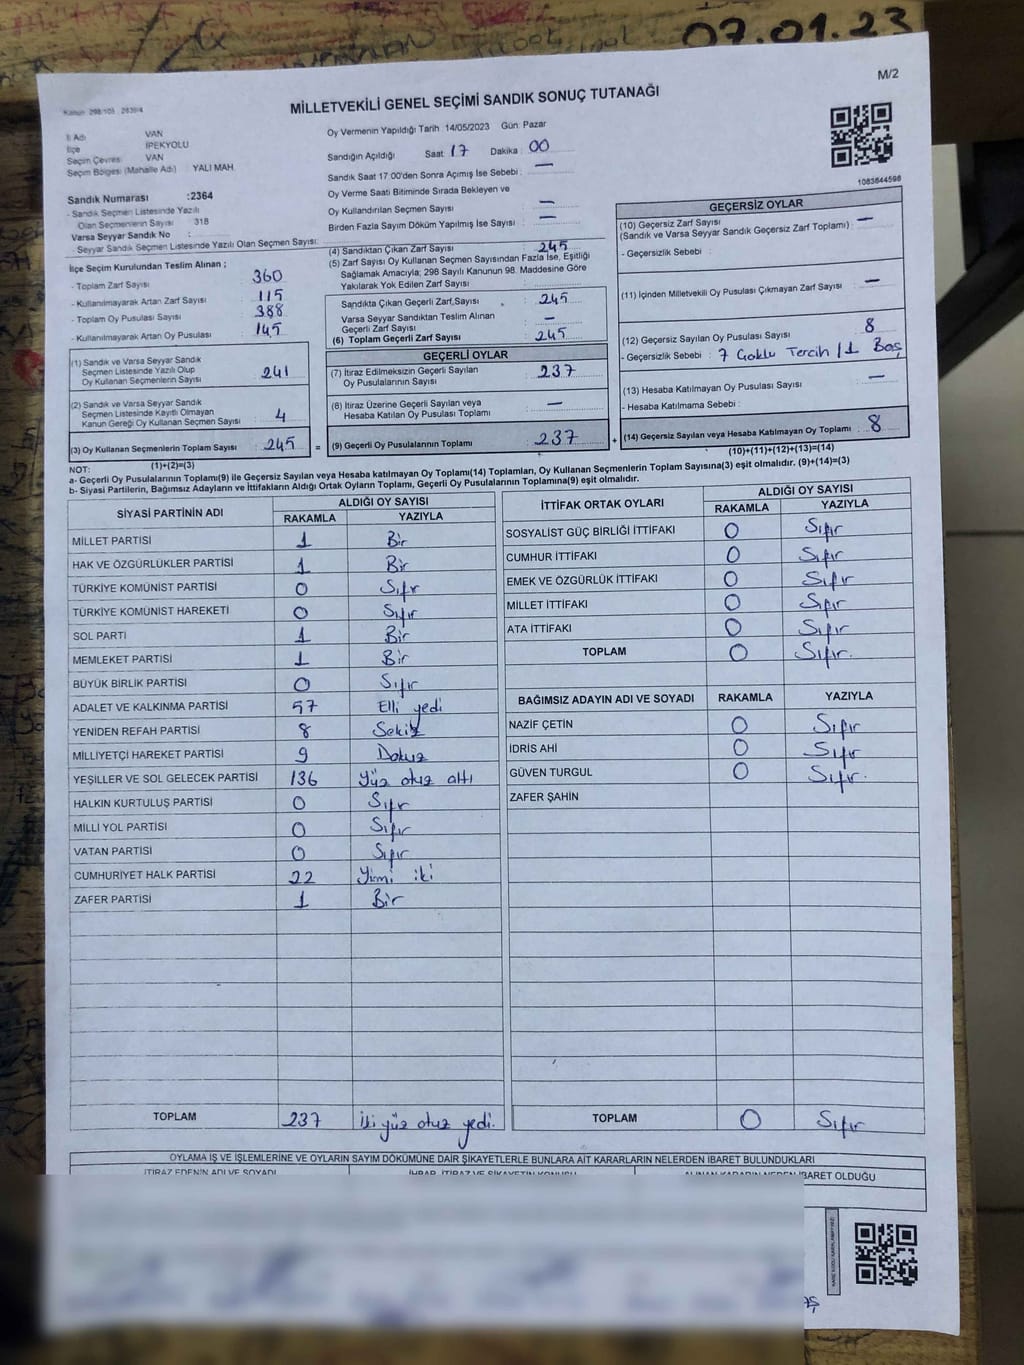 07.01.23
M/2
MİLLETVEKİLİ GENEL SEÇİMİ SANDIK SONUÇ TUTANAĞI
İl Adı VAN
İlçe İPEKYOLU
Seçim Çevresi VAN
Seçim Bölgesi (Mahalle Adı) YALI MAH.
Oy Vermenin Yapıldığı Tarih 14/05/2023 Gün: Pazar
Sandığın Açıldığı Saat 17 Dakika : 00
Sandık Saat 17:00'den Sonra Açımış İse Sebebi : —
Oy Verme Saati Bitiminde Sırada Bekleyen ve
Oy Kullandırılan Seçmen Sayısı : —
Birden Fazla Sayım Döküm Yapılmış İse Sayısı : —
1083644596
Sandık Numarası :2364
- Sandık Seçmen Listesinde Yazılı
Olan Seçmenlerin Sayısı : 318
Varsa Seyyar Sandık No :
- Seyyar Sandık Seçmen Listesinde Yazılı Olan Seçmen Sayısı:
İlçe Seçim Kurulundan Teslim Alınan ;
- Toplam Zarf Sayısı : 360
- Kullanılmayarak Artan Zarf Sayısı : 115
- Toplam Oy Pusulası Sayısı : 388
- Kullanılmayarak Artan Oy Pusulası : 145
(1) Sandık ve Varsa Seyyar Sandık
Seçmen Listesinde Yazılı Olup
Oy Kullanan Seçmenlerin Sayısı : 241
(2) Sandık ve Varsa Seyyar Sandık
Seçmen Listesinde Kayıtlı Olmayan
Kanun Gereği Oy Kullanan Seçmen Sayısı : 4
(3) Oy Kullanan Seçmenlerin Toplam Sayısı : 245 =
(1)+(2)=(3)
(4) Sandıktan Çıkan Zarf Sayısı : 245
(5) Zarf Sayısı Oy Kullanan Seçmen Sayısından Fazla İse, Eşitliği
Sağlamak Amacıyla; 298 Sayılı Kanunun 98. Maddesine Göre
Yakılarak Yok Edilen Zarf Sayısı :
Sandıkta Çıkan Geçerli Zarf Sayısı : 245
Varsa Seyyar Sandıktan Teslim Alınan
Geçerli Zarf Sayısı : —
(6) Toplam Geçerli Zarf Sayısı : 245
GEÇERLİ OYLAR
(7) İtiraz Edilmeksizin Geçerli Sayılan
Oy Pusulalarının Sayısı : 237
(8) İtiraz Üzerine Geçerli Sayılan veya
Hesaba Katılan Oy Pusulası Toplamı : —
(9) Geçerli Oy Pusulalarının Toplamı : 237 +
GEÇERSİZ OYLAR
(10) Geçersiz Zarf Sayısı : —
(Sandık ve Varsa Seyyar Sandık Geçersiz Zarf Toplamı)
- Geçersizlik Sebebi :
(11) İçinden Milletvekili Oy Pusulası Çıkmayan Zarf Sayısı : —
(12) Geçersiz Sayılan Oy Pusulası Sayısı : 8
- Geçersizlik Sebebi : 7 Çoklu Tercih / 1 Boş
(13) Hesaba Katılmayan Oy Pusulası Sayısı : —
- Hesaba Katılmama Sebebi :
(14) Geçersiz Sayılan veya Hesaba Katılmayan Oy Toplamı : 8
(10)+(11)+(12)+(13)=(14)
NOT:
a- Geçerli Oy Pusulalarının Toplamı(9) ile Geçersiz Sayılan veya Hesaba katılmayan Oy Toplamı(14) Toplamları, Oy Kullanan Seçmenlerin Toplam Sayısına(3) eşit olmalıdır. (9)+(14)=(3)
b- Siyasi Partilerin, Bağımsız Adayların ve İttifakların Aldığı Ortak Oyların Toplamı, Geçerli Oy Pusulalarının Toplamına(9) eşit olmalıdır.
SİYASİ PARTİNİN ADI ALDIĞI OY SAYISI
RAKAMLA YAZIYLA
MİLLET PARTİSİ 1 Bir
HAK VE ÖZGÜRLÜKLER PARTİSİ 1 Bir
TÜRKİYE KOMÜNİST PARTİSİ 0 Sıfır
TÜRKİYE KOMÜNİST HAREKETİ 0 Sıfır
SOL PARTİ 1 Bir
MEMLEKET PARTİSİ 1 Bir
BÜYÜK BİRLİK PARTİSİ 0 Sıfır
ADALET VE KALKINMA PARTİSİ 57 Elli yedi
YENİDEN REFAH PARTİSİ 8 Sekiz
MİLLİYETÇİ HAREKET PARTİSİ 9 Dokuz
YEŞİLLER VE SOL GELECEK PARTİSİ 136 Yüz otuz altı
HALKIN KURTULUŞ PARTİSİ 0 Sıfır
MİLLİ YOL PARTİSİ 0 Sıfır
VATAN PARTİSİ 0 Sıfır
CUMHURİYET HALK PARTİSİ 22 Yimi iki
ZAFER PARTİSİ 1 Bir
TOPLAM 237 İki yüz otuz yedi.
İTTİFAK ORTAK OYLARI ALDIĞI OY SAYISI
RAKAMLA YAZIYLA
SOSYALİST GÜÇ BİRLİĞİ İTTİFAKI 0 Sıfır
CUMHUR İTTİFAKI 0 Sıfır
EMEK VE ÖZGÜRLÜK İTTİFAKI 0 Sıfır
MİLLET İTTİFAKI 0 Sıfır
ATA İTTİFAKI 0 Sıfır
TOPLAM 0 Sıfır.
BAĞIMSIZ ADAYIN ADI VE SOYADI RAKAMLA YAZIYLA
NAZİF ÇETİN 0 Sıfır
İDRİS AHİ 0 Sıfır
GÜVEN TURGUL 0 Sıfır.
ZAFER ŞAHİN
TOPLAM 0 Sıfır
OYLAMA İŞ VE İŞLEMLERİNE VE OYLARIN SAYIM DÖKÜMÜNE DAİR ŞİKAYETLERLE BUNLARA AİT KARARLARIN NELERDEN İBARET BULUNDUKLARI
İTİRAZ EDENİN ADI VE SOYADI İHBAR, İTİRAZ VE ŞİKAYETİN KONUSU ALINAN KARARIN NEDEN İBARET OLDUĞU